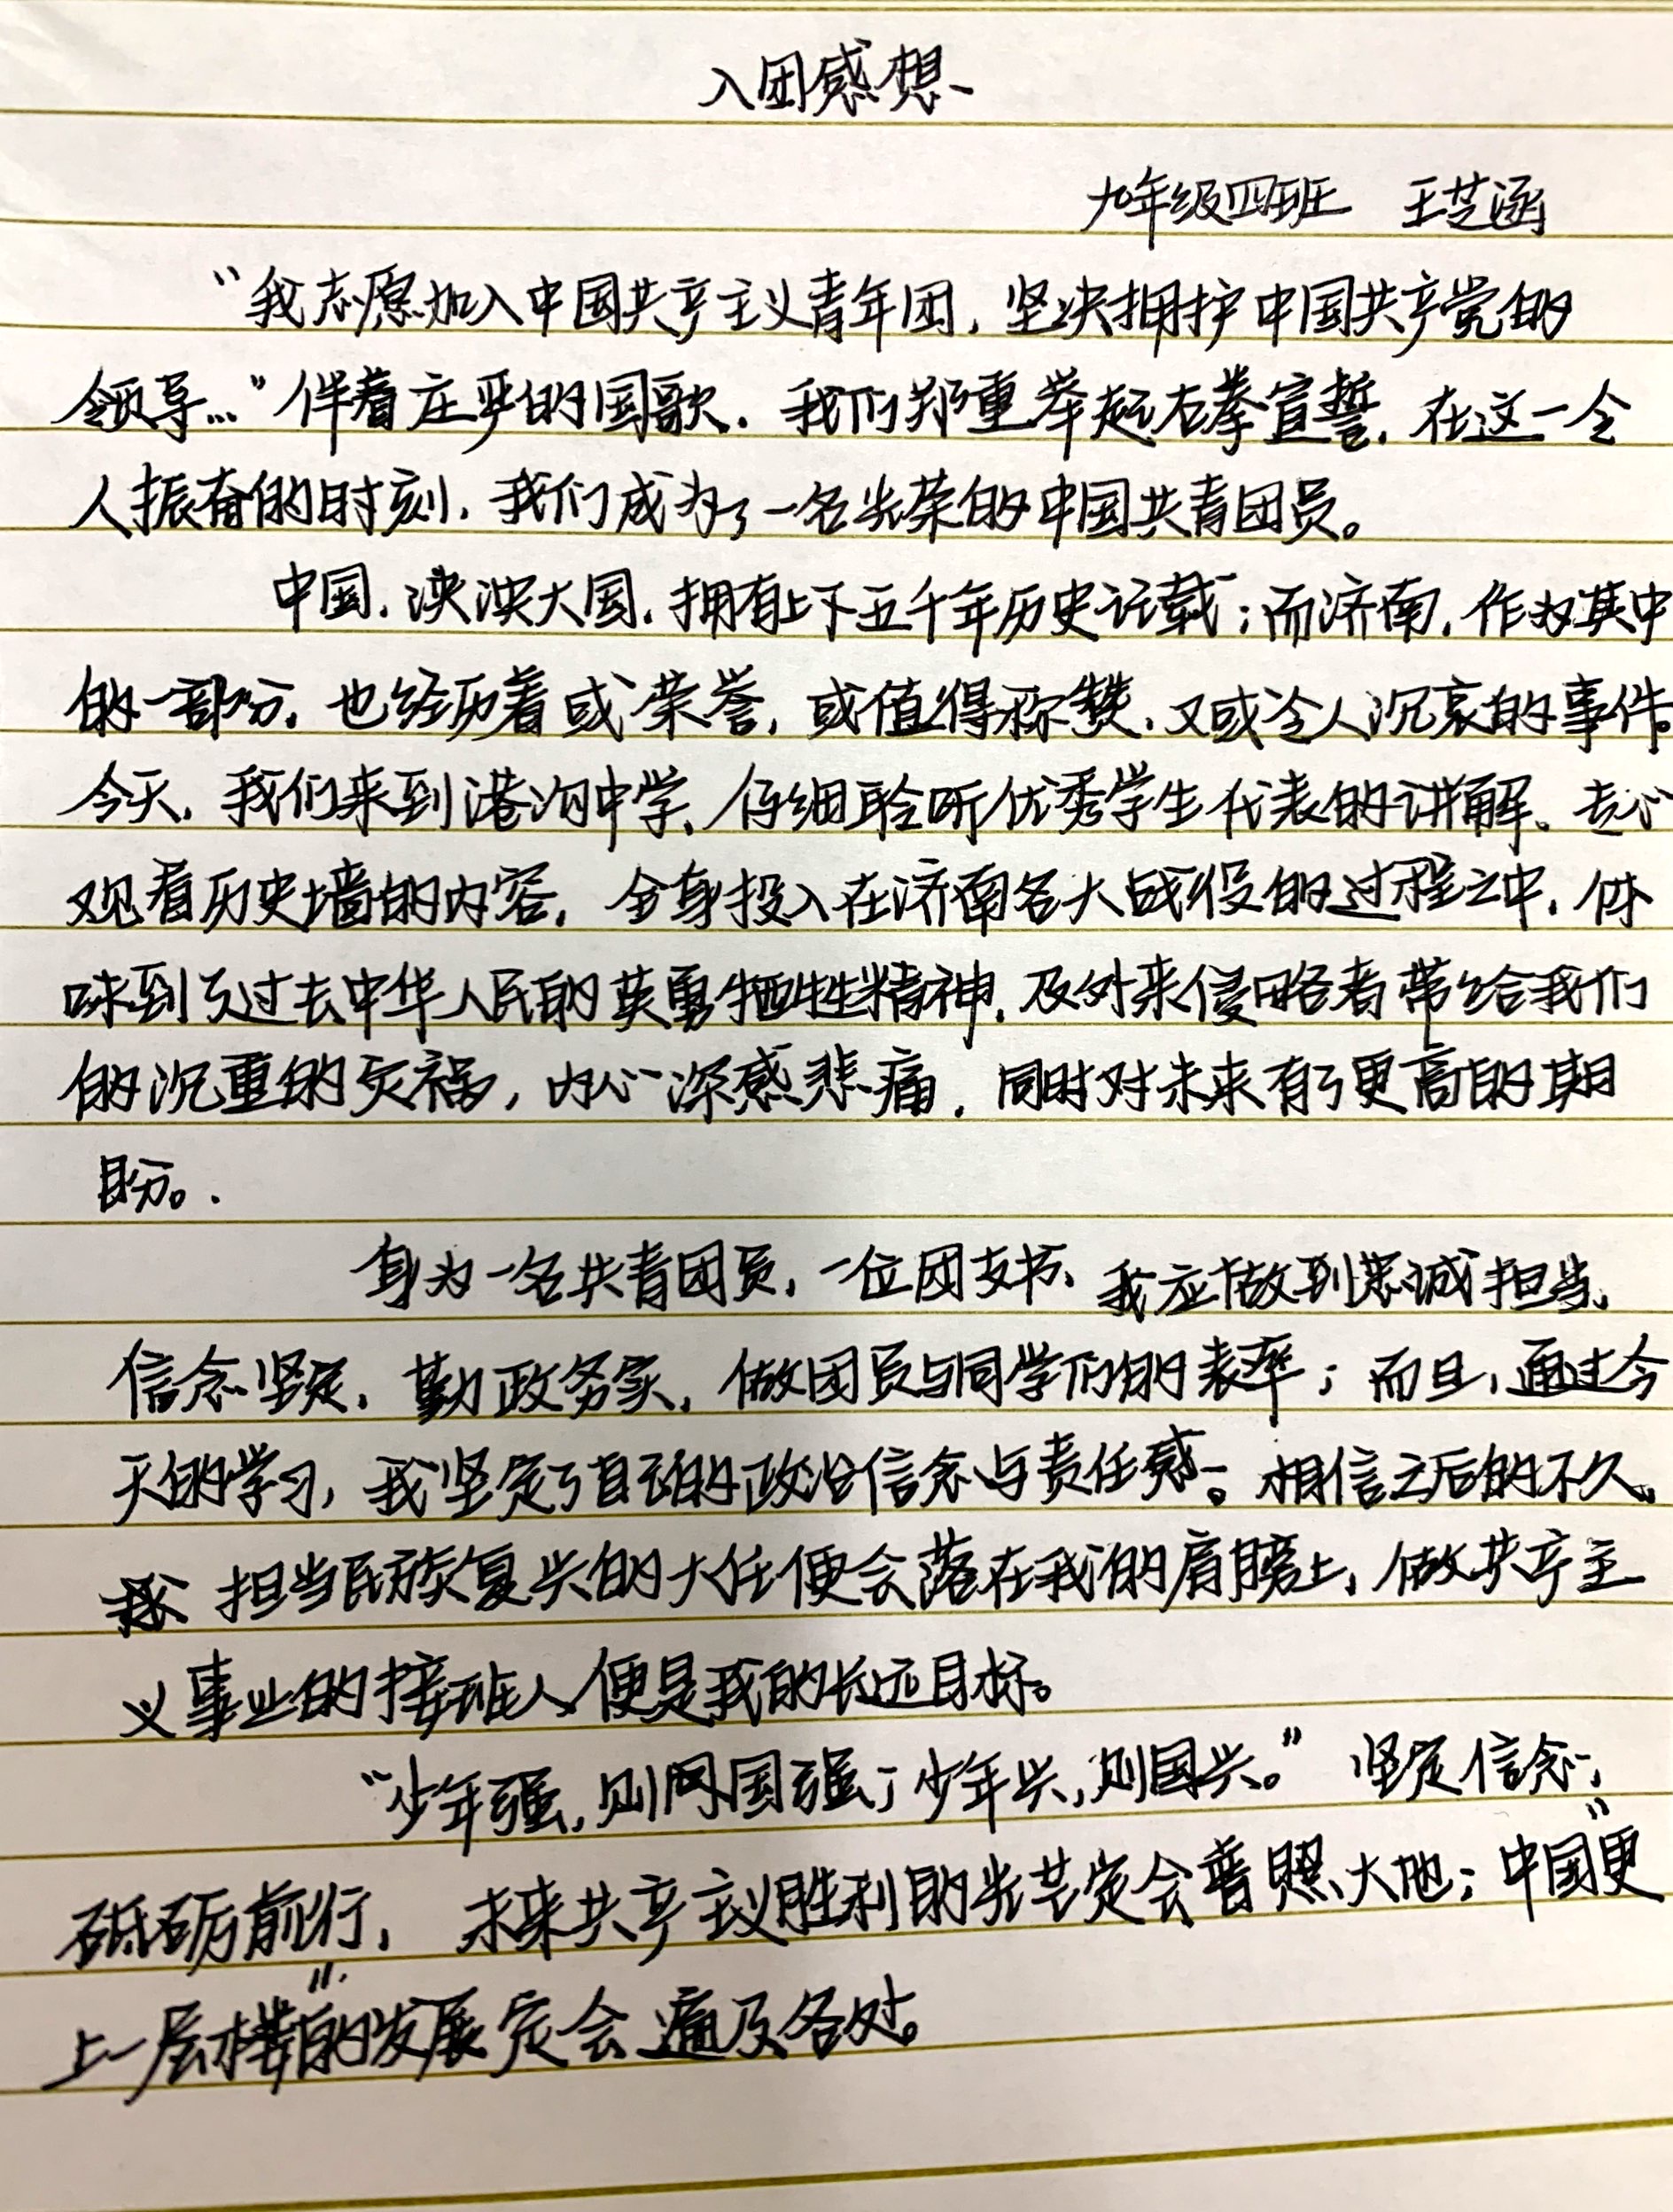 入团感想
九年级四班 王芝涵
“我志愿加入中国共产主义青年团，坚决拥护中国共产党的
领导...”伴着庄严的国歌，我们郑重举起右拳宣誓，在这一令
人振奋的时刻，我们成为了一名光荣的中国共青团员。
中国，泱泱大国，拥有上下五千年历史记载；而济南，作为其中
的一部分，也经历着或荣誉，或值得称赞，又或令人沉哀的事件。
今天，我们来到港沟中学，仔细聆听优秀学生代表的讲解、去心
观看历史墙的内容，全身投入在济南各大战役的过程之中，体
味到了过去中华人民的英勇牺牲精神，及外来侵略者带给我们
的沉重的灾祸，内心深感悲痛，同时对未来有了更高的期
盼。
身为一名共青团员，一位团支书、我应做到忠诚担当，
信念坚定，勤政务实，做团员与同学们的表率；而且，通过今
天的学习，我坚定了自己的政治信念与责任感。相信之后的不久，
担当民族复兴的大任便会落在我的肩膀上，做共产主
义事业的接班人便是我的长远目标。
“少年强，则国强；少年兴，则国兴。”坚定信念，
砥砺前行，未来共产主义胜利的光芒定会普照大地；中国“更
上一层楼”的发展定会遍及各处。